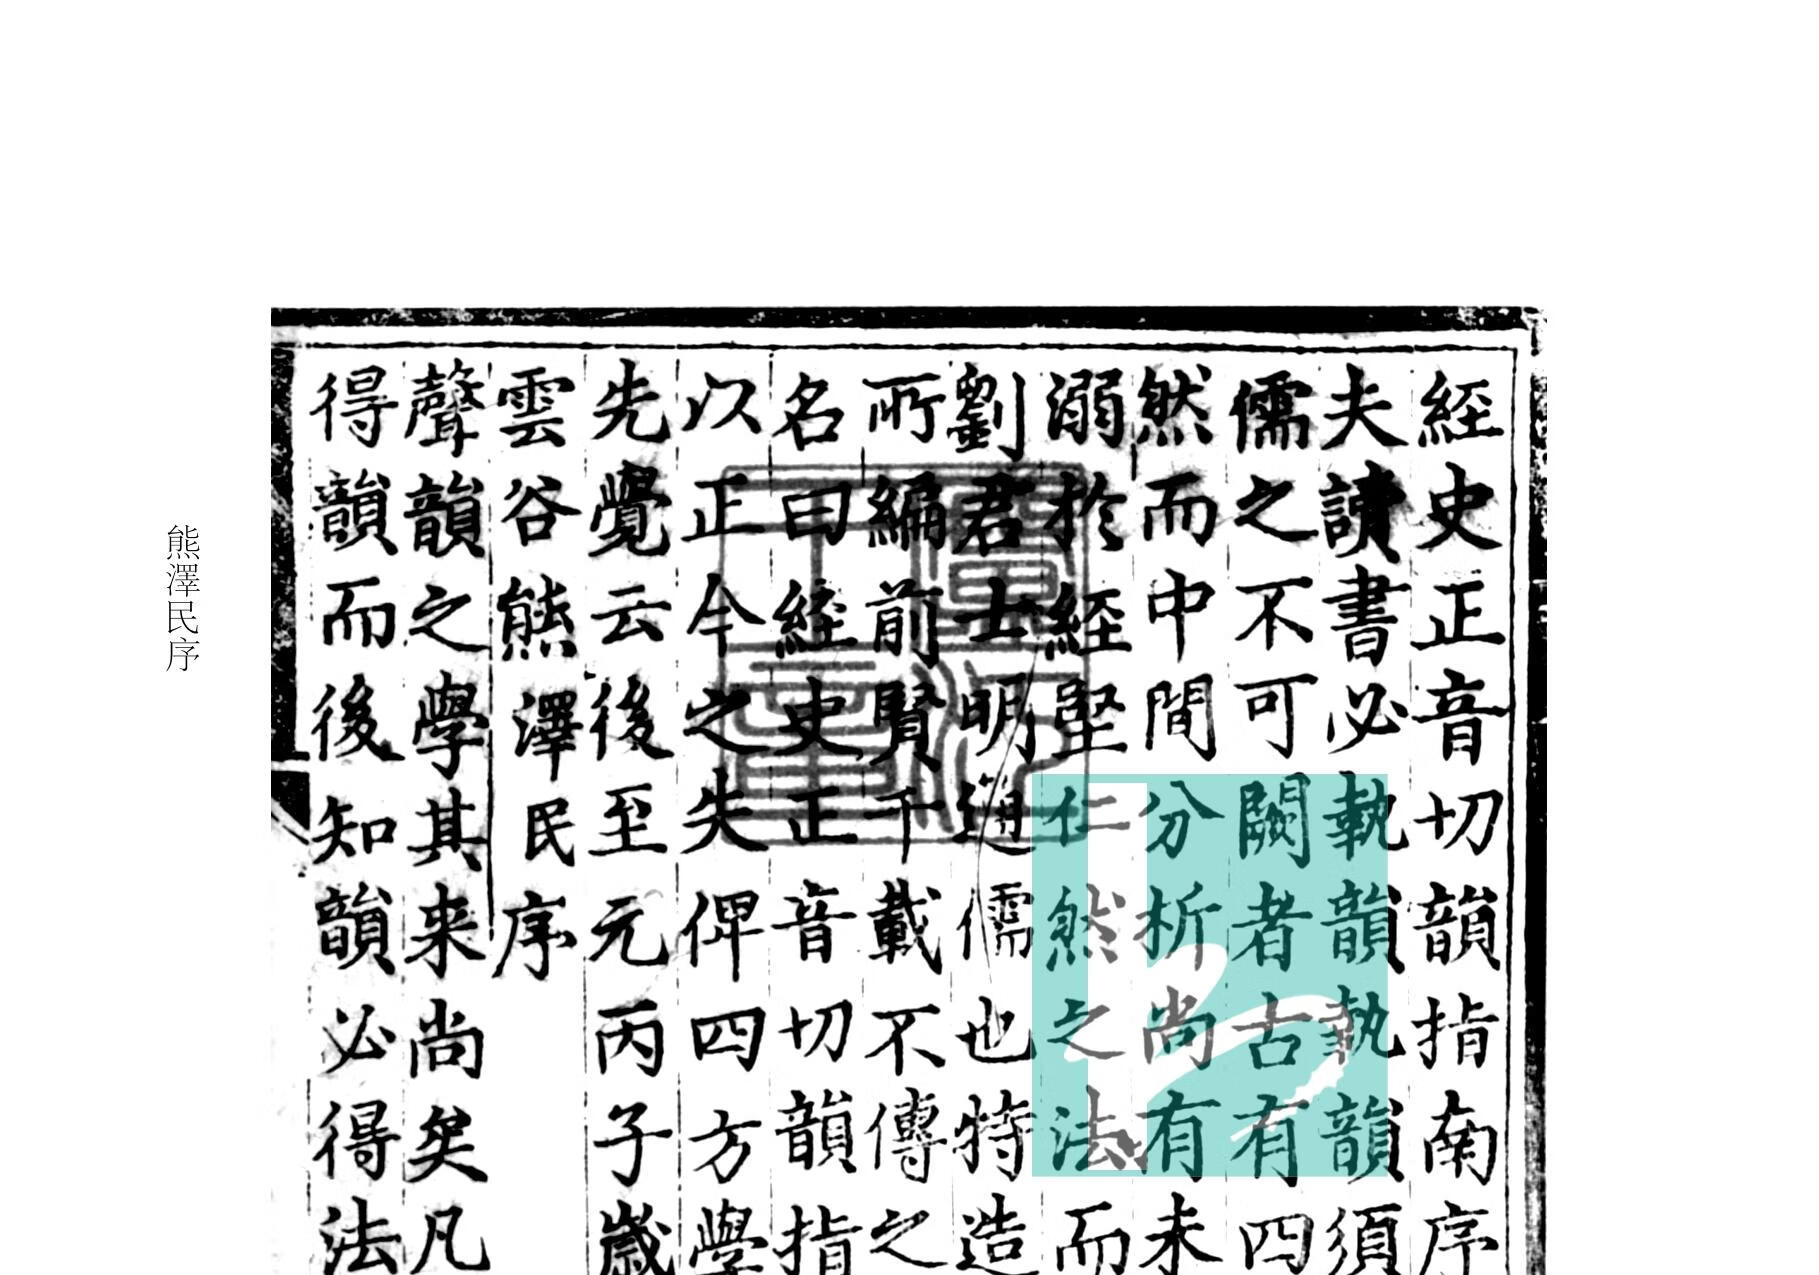 經史正音切韻指南序
夫讀書必執韻執韻須
儒之不可闕者古有四
然而中間分析尚有未
溺於經堅仁然之法而
劉君士明通儒也特造
所編前賢千載不傳之
名曰經史正音切韻指
以正今之失俾四方學
先覺云後至元丙子歲
雲谷熊澤民序
聲韻之學其来尚矣凡
得韻而後知韻必得法
熊澤民序